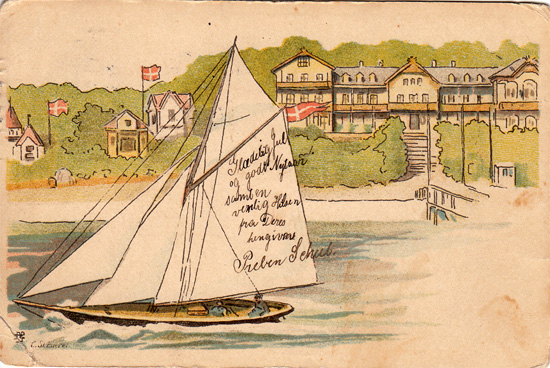 Glædelig Jul
og godt Nytaar!
samt en
venlig Hilsen
fra Deres
hengivne
Preben Scheel.